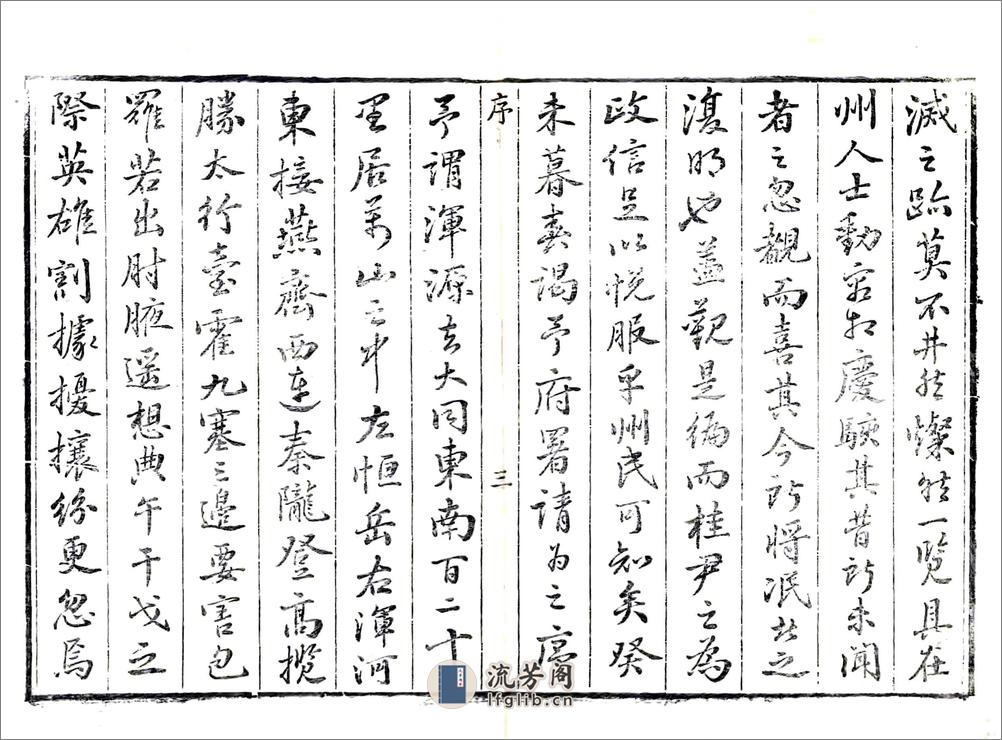 滅之跡莫不井然燦然一覽具在
州人士動容相慶駭其昔所未聞
者之忽覩而喜其今所將泯者之
復明也蓋觀是編而桂尹之為
政信足以悅服乎州民可知矣癸
未暮春謁予府署請為之序
序 三
予謂渾源去大同東南百二十
里居萬山之中左恒岳右渾河
東接燕齊西連秦隴登高攬
勝太行臺霍九塞三邊要害包
羅若出肘腋遥想典午干戈之
際英雄割據擾攘紛更忽焉
流芳阁
lfglib.cn